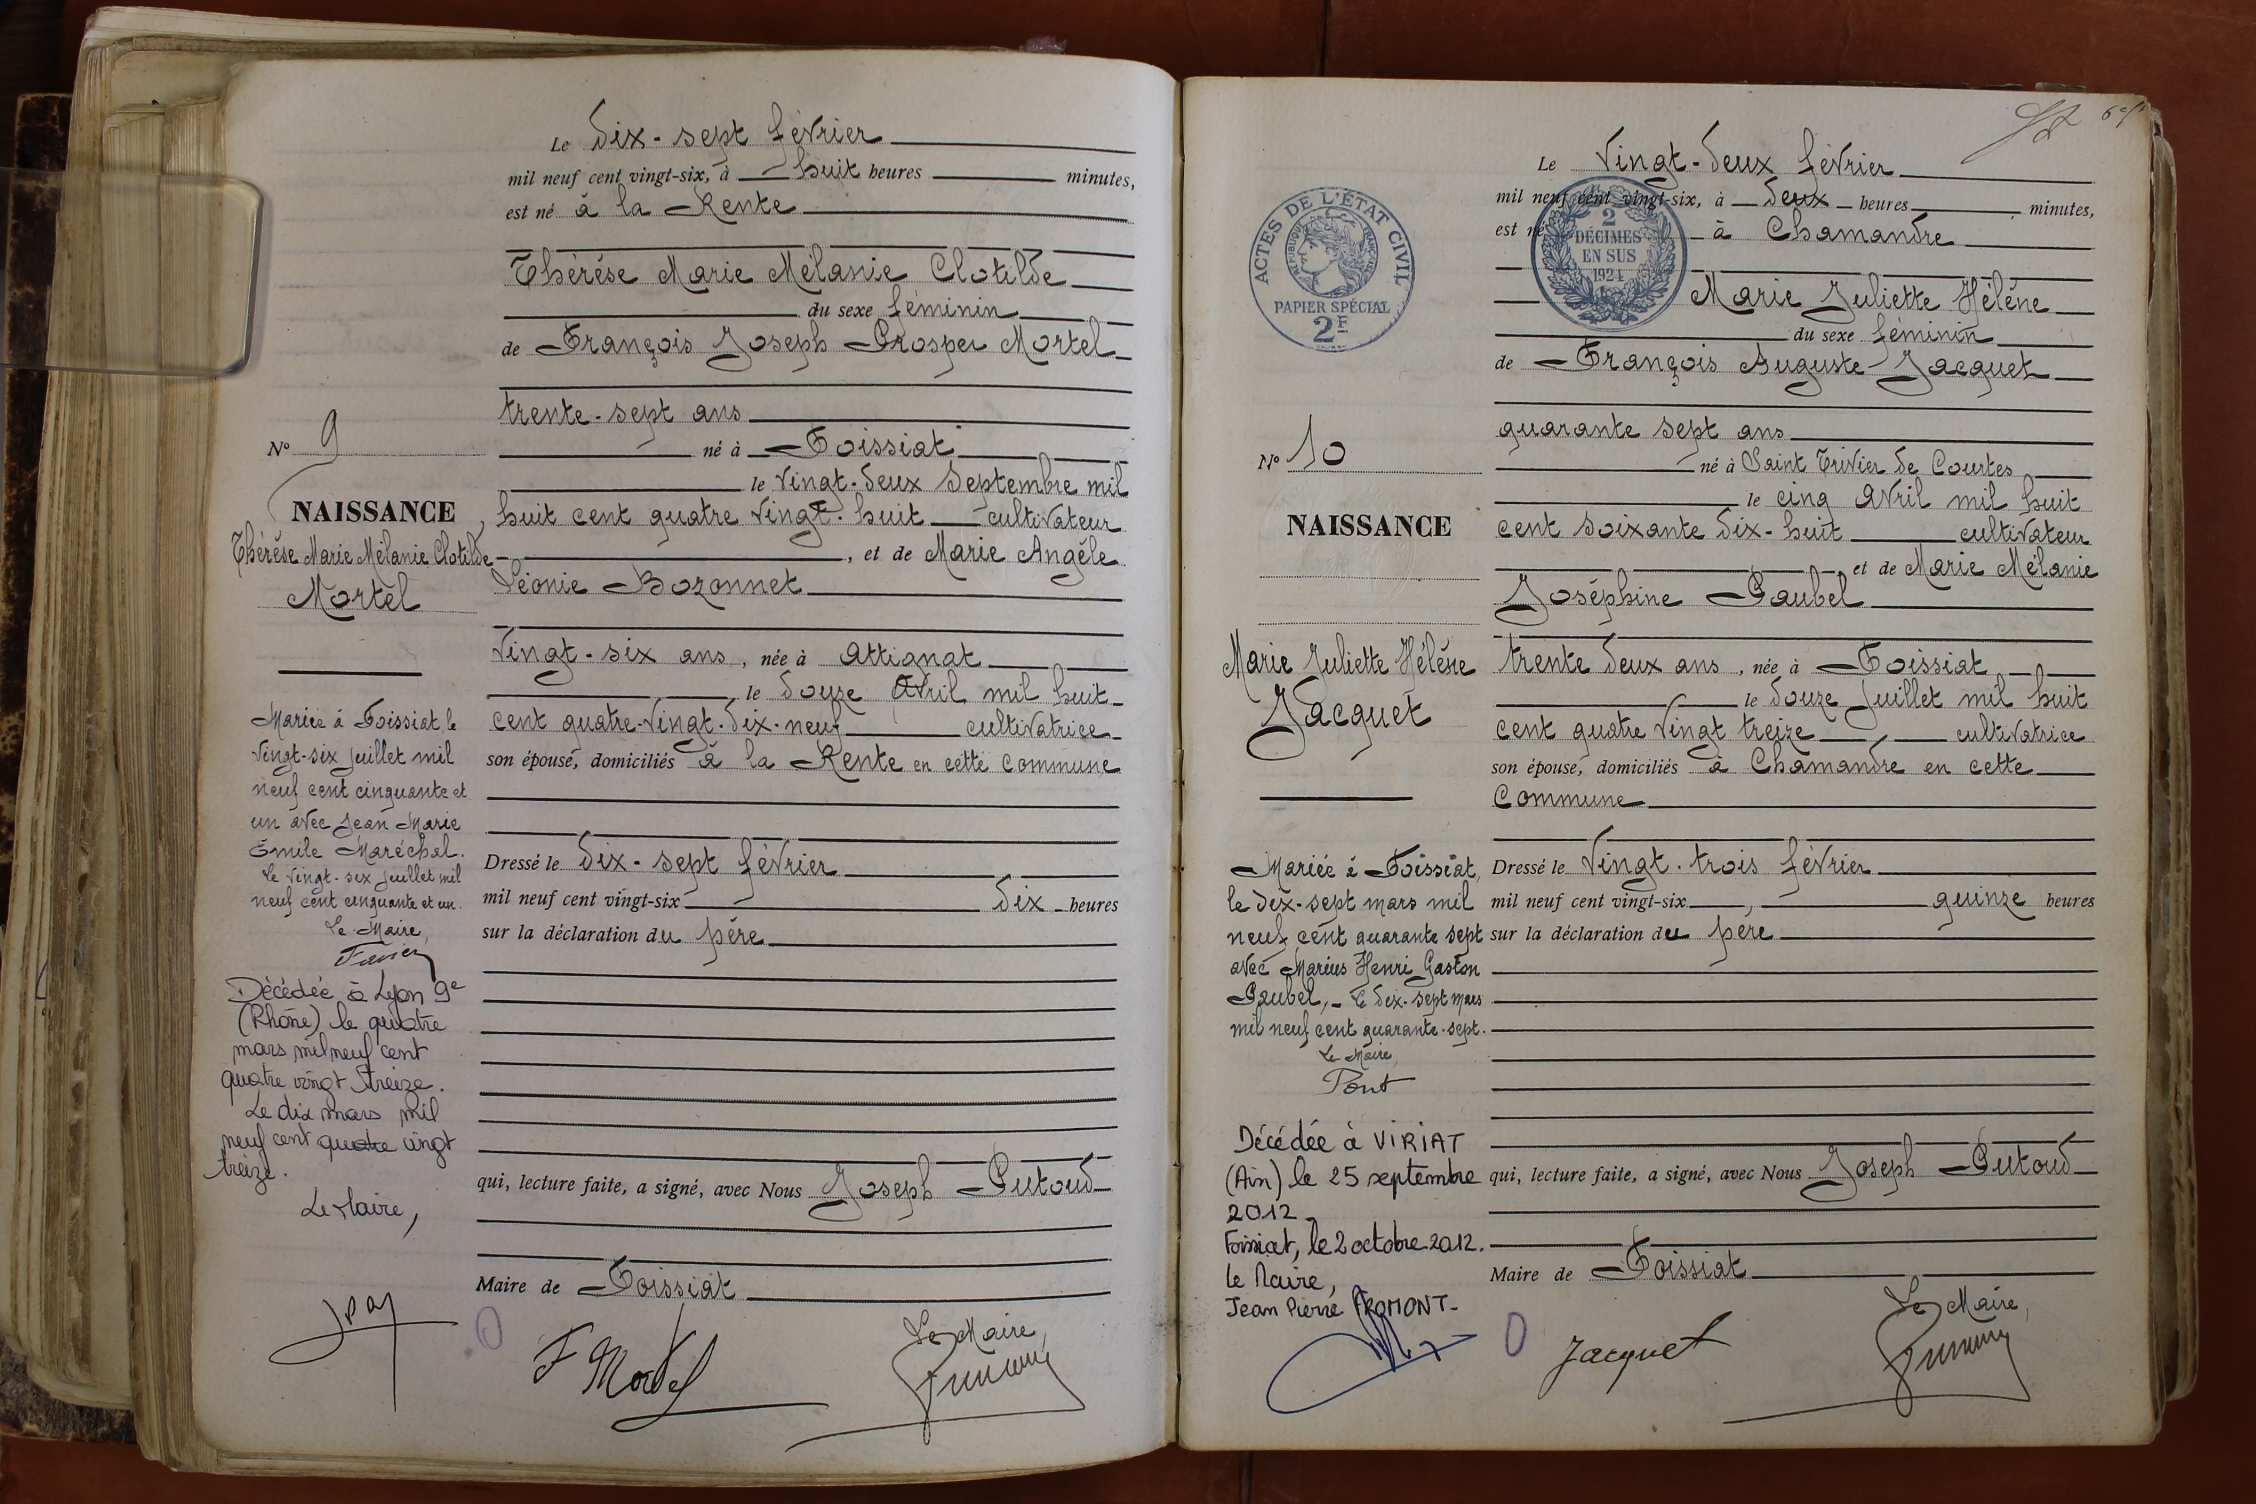 Le Dix-sept février
mil neuf cent vingt-six, à huit heures minutes,
est né à la Rente
Thérèse Marie Mélanie Clotilde
du sexe féminin
de François Joseph Prosper Mortel
trente-sept ans
né à Foissiat
le vingt-deux Septembre mil
huit cent quatre vingt-huit cultivateur
, et de Marie Angèle
Léonie Bozonnet
Vingt-six ans, née à Attignat
le douze Avril mil huit
cent quatre-vingt-dix-neuf cultivatrice
son épouse, domiciliés à la Rente en cette commune
Dressé le dix-sept février
mil neuf cent vingt-six dix heures
sur la déclaration du père
qui, lecture faite, a signé, avec Nous Joseph Putoud
Maire de Foissiat
Le Maire,
F Mortel
N° 9
NAISSANCE
Thérèse Marie Mélanie Clotilde
Mortel
Mariée à Foissiat le
vingt-six juillet mil
neuf cent cinquante et
un avec Jean Marie
Émile Maréchal.
Le vingt-six juillet mil
neuf cent cinquante et un.
Le Maire,
Décédée à Lyon 9e
(Rhône) le quatre
mars mil neuf cent
quatre vingt treize.
Le dix mars mil
neuf cent quatre vingt
treize.
Le Maire,
Le Vingt-deux février
mil neuf cent vingt-six, à deux heures minutes,
est né à Chamandre
Marie Juliette Hélène
du sexe féminin
de François Auguste Jacquet
quarante sept ans
né à Saint Trivier de Courtes
le cinq Avril mil huit
cent soixante dix-huit cultivateur
et de Marie Mélanie
Joséphine Paubel
trente deux ans, née à Foissiat
le douze Juillet mil huit
cent quatre vingt treize, cultivatrice
son épouse, domiciliés à Chamandre en cette
Commune
Dressé le Vingt-trois février
mil neuf cent vingt-six, quinze heures
sur la déclaration du père
qui, lecture faite, a signé, avec Nous Joseph Putoud
Maire de Foissiat
Le Maire,
Jacquet
ACTES DE L'ÉTAT CIVIL
RÉPUBLIQUE FRANÇAISE
PAPIER SPÉCIAL
2F
2
DÉCIMES
EN SUS
1924
N° 10
NAISSANCE
Marie Juliette Hélène
Jacquet
Mariée à Foissiat,
le dix-sept mars mil
neuf cent quarante sept
avec Marius Henri Gaston
Paubel, - Le dix-sept mars
mil neuf cent quarante-sept.
Le Maire,
Pont
Décédée à VIRIAT
(Ain) le 25 septembre
2012.
Foissiat, le 2 octobre 2012.
Le Maire,
Jean Pierre FROMONT-